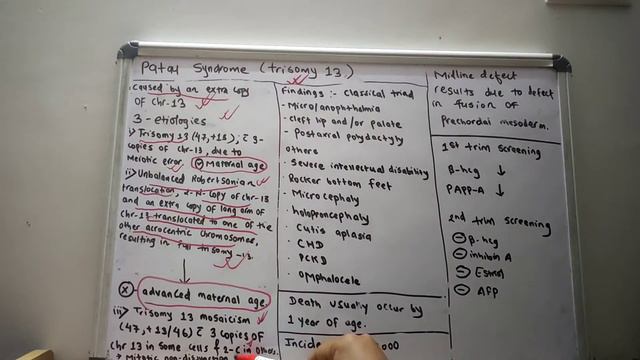 Patau Syndrome (trisomy 13)
Caused by an extra copy
of chr-13
3 - etiologies
i) Trisomy 13 (47,+13); c̄ 3-
copies of chr-13, due to
Meiotic error. + Maternal age
ii) Unbalanced Robertsonian
translocation, 2-N copy of chr-13
and an extra copy of long arm of
chr-13 translocated to one of the
other acrocentric chromosomes,
resulting in full trisomy -13.
x advanced maternal age
iii) Trisomy 13 mosaicism
(47,+13/46) c̄ 3 copies of
chr 13 in some cells & 2-c in others.
→ Mitotic non-disjunction
Findings :- classical triad
- Micro/anophthalmia
- cleft lip and/or palate
- Postaxial polydactyly
others
- Severe intellectual disability
- Rocker bottom feet
- Microcephaly
- holoprencephaly
- Cutis aplasia
- CHD
- PCKD
- omphalocele
Death usually occur by
1 year of age.
Incide 000
Midline defect
results due to defect
in fusion of
Prechordal mesoderm.
1st trim screening
β-hcg ↓
PAPP-A ↓
2nd trim screening
- β-hcg
- inhibin A
- Estriol
- AFP